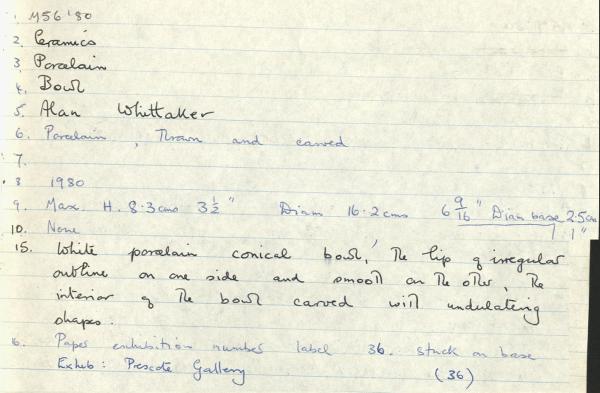 1. M56 '80
2. Ceramics
3. Porcelain
4. Bowl
5. Alan Whittaker
6. Porcelain, Thrown and carved
7.
8 1980
9. Max. H. 8.3cms 3½" Diam 16.2cms 6 9/16" Diam base 2.5cm
10. None 1"
15. White porcelain conical bowl, The lip of irregular
outline on one side and smooth on the other, The
interior of the bowl carved with undulating
shapes.
16. Paper exhibition number label 36. stuck on base
Exhib: Prescote Gallery (36)